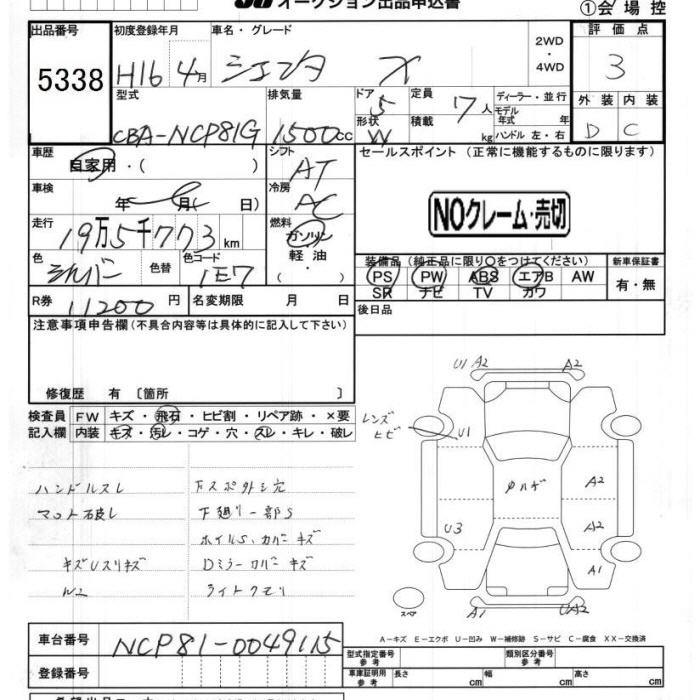 オークション出品申込書
①会場控
出品番号 5338
初度登録年月 H16 4月
車名・グレード シエンタ X
2WD・4WD
評価点 3
型式 CBA-NCP81G
排気量 1500cc
ドア 5
形状 W
定員 7人
積載 kg
ディーラー・並行
モデル年式 年
ハンドル 左・右
外装 D
内装 C
車歴 自家用・( )
シフト AT
セールスポイント (正常に機能するものに限ります)
車検 年 月( 日)
冷房 AC
NOクレーム・売切
走行 19万5千773km
燃料 ガソリン 軽油・( )
色 シルバー 色替
色コード 1E7
装備品 (純正品に限り○をつけてください)
PS PW ABS エアB AW
SR ナビ TV カワ
新車保証書 有・無
R券 11200円
名変期限 月 日
後日品
注意事項申告欄 (不具合内容等は具体的に記入して下さい)
修復歴 有 〔箇所 〕
検査員記入欄
FW キズ・飛石・ヒビ割・リペア跡・×要
内装 キズ・汚レ・コゲ・穴・スレ・キレ・破レ
ハンドルスレ
下スポイラー穴
マット破レ
下廻り一部S
ホイルS、カバーキズ
Dミラーカバーキズ
W2
ライトクモリ
U1 A2
A2
レンズヒビ
U1
A2
U3
A2
A1
A1
スペア
A-キズ E-エクボ U-凹み W-補修跡 S-サビ C-腐食 XX-交換済
車台番号 NCP81-0049115
登録番号
型式指定番号 参考
類別区分番号 参考
車庫証明用 参考
長さ cm
幅 cm
高さ cm